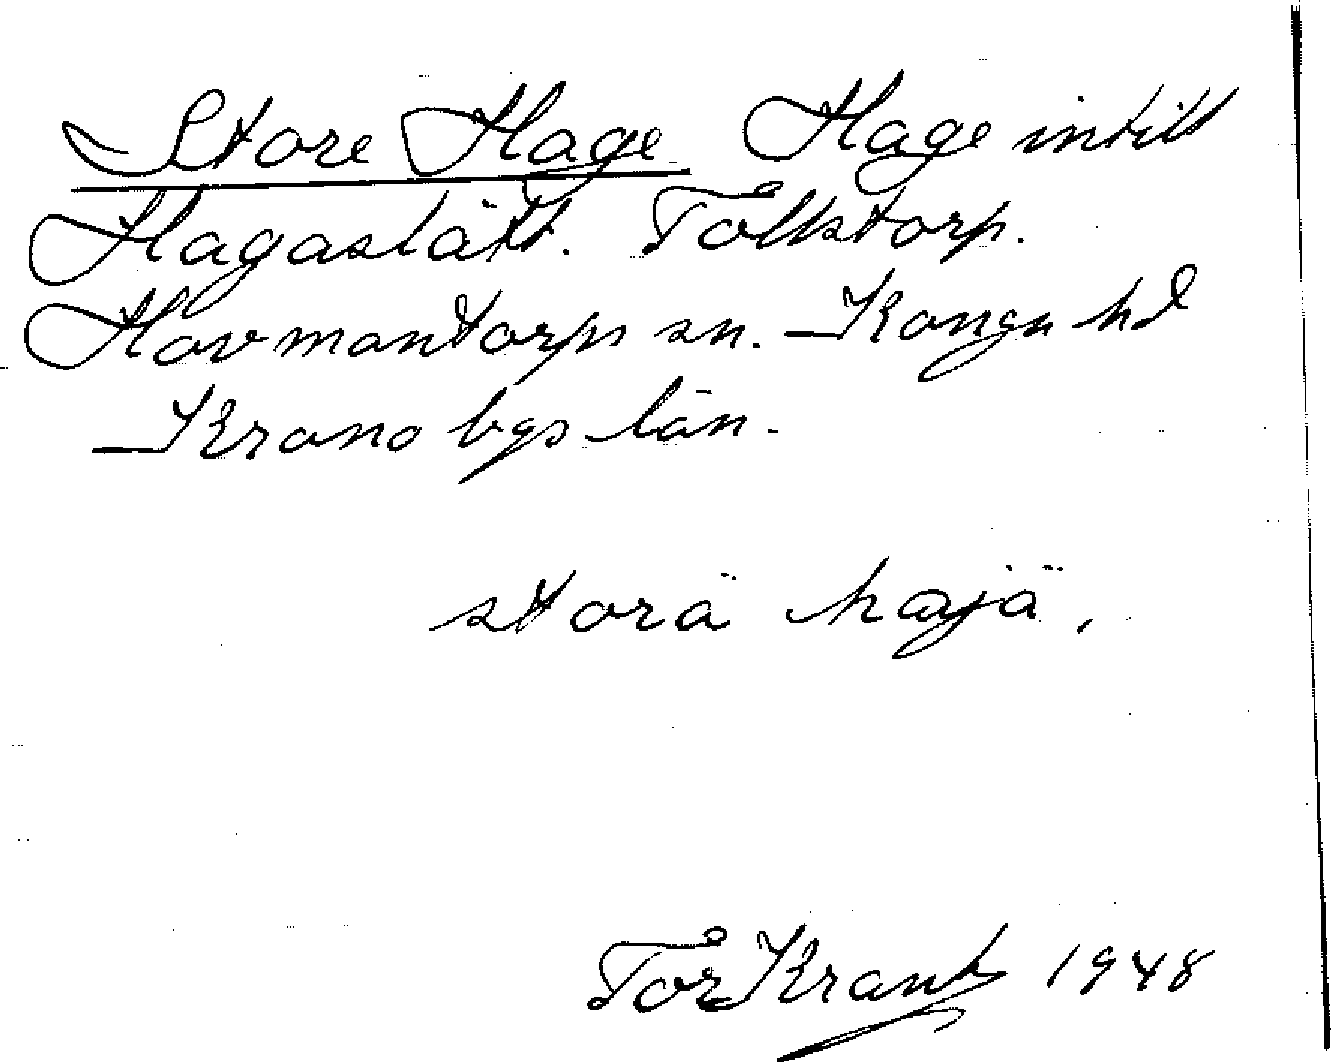 Store Hage Hage intill
Hagaslätt. Tolkstorp.
Hovmantorps sn. Konga hd
Kronobgs län.
storä hajä.
Tor Krantz 1948